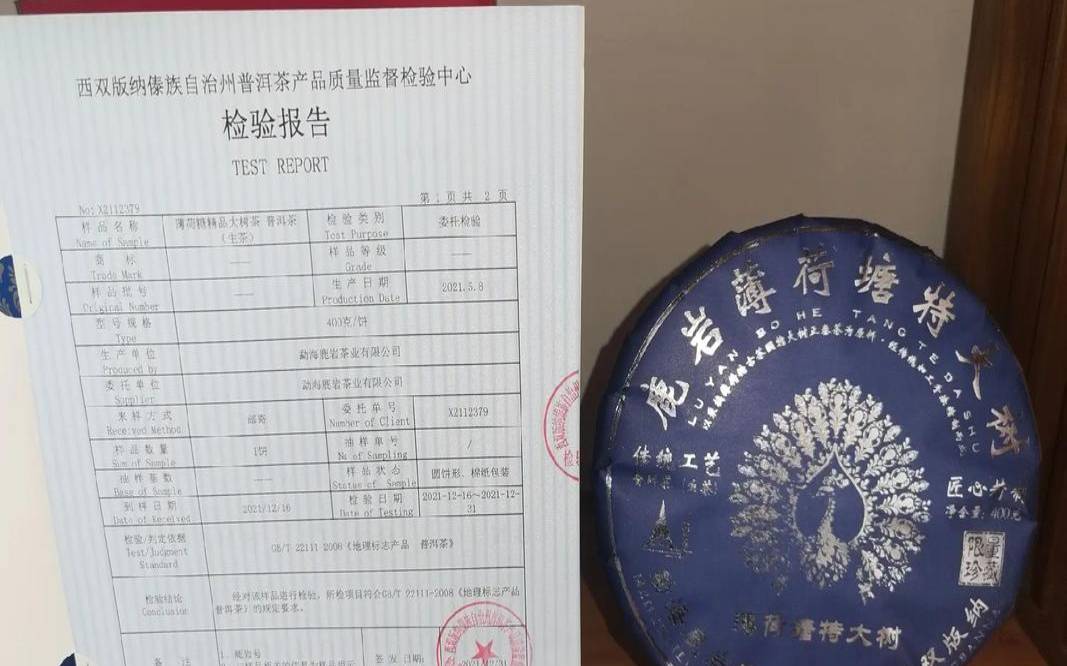 西双版纳傣族自治州普洱茶产品质量监督检验中心
检验报告
TEST REPORT
No: X2112379
第 1 页 共 2 页
样品名称
Name of Sample
薄荷糖精品大树茶 普洱茶
(生茶)
检验类别
Test Purpose
委托检验
商 标
Trade Mark
——
样品等级
Grade
——
样品批号
Original Number
——
生产日期
Production Date
2021.5.8
型号规格
Type
400克/饼
生产单位
Produced by
勐海鹿岩茶业有限公司
委托单位
Supplier
勐海鹿岩茶业有限公司
来样方式
Received Method
邮寄
委托单号
Number of Client
X2112379
样品数量
Sum of Sample
1饼
抽样单号
No of Sampling
/
抽样基数
Base of Sample
——
样品状态
Status of Sample
圆饼形、棉纸包装
到样日期
Data of Received
2021/12/16
检验日期
Date of Testing
2021-12-16~2021-12-
31
检验/判定依据
Test/Judgment
Standard
GB/T 22111-2008《地理标志产品 普洱茶》
检验结论
Conclusion
经对该样品进行检验，所检项目符合GB/T 22111-2008《地理标志产品
普洱茶》的规定要求。
备 注
签发日期:
2021/12/31
鹿岩薄荷塘特大树
LU YAN BO HE TANG TE DA SHU
传统工艺
匠心
净含量:400克
限量
珍藏
薄荷塘特大树
版纳